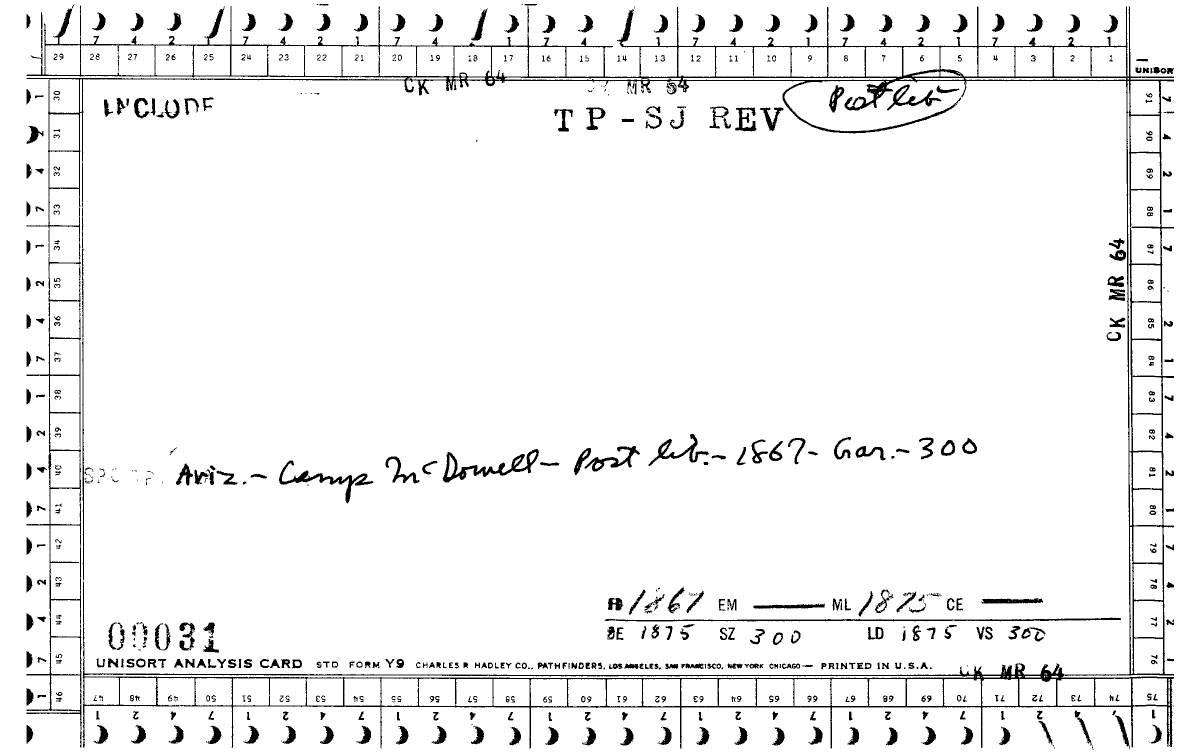 7 4 2 7 4 2 1 7 4 1 7 4 1 7 4 2 1 7 4 2 1
29 28 27 26 25 24 23 22 21 20 19 18 17 16 15 14 13 12 11 10 9 8 7 6 5 4 3 2 1
UNISORT
CK MR 64 CK MR 64
INCLUDE
Post lib
TP-SJ REV
30 31 32 33 34 35 36 37 38 39 40 41 42 43 44 45 46
91 90 89 88 87 86 85 84 83 82 81 80 79 78 77 76
CK MR 64
Ariz. - Camp McDowell - Post lib. - 1867 - Gar. - 300
1867 EM ——— ML 1875 CE ———
BE 1875 SZ 300 LD 1875 VS 300
00031
UNISORT ANALYSIS CARD STD FORM Y9 CHARLES R HADLEY CO., PATHFINDERS, LOS ANGELES, SAN FRANCISCO, NEW YORK CHICAGO — PRINTED IN U.S.A.
CK MR 64
47 48 49 50 51 52 53 54 55 56 57 58 59 60 61 62 63 64 65 66 67 68 69 70 71 72 73 74 75